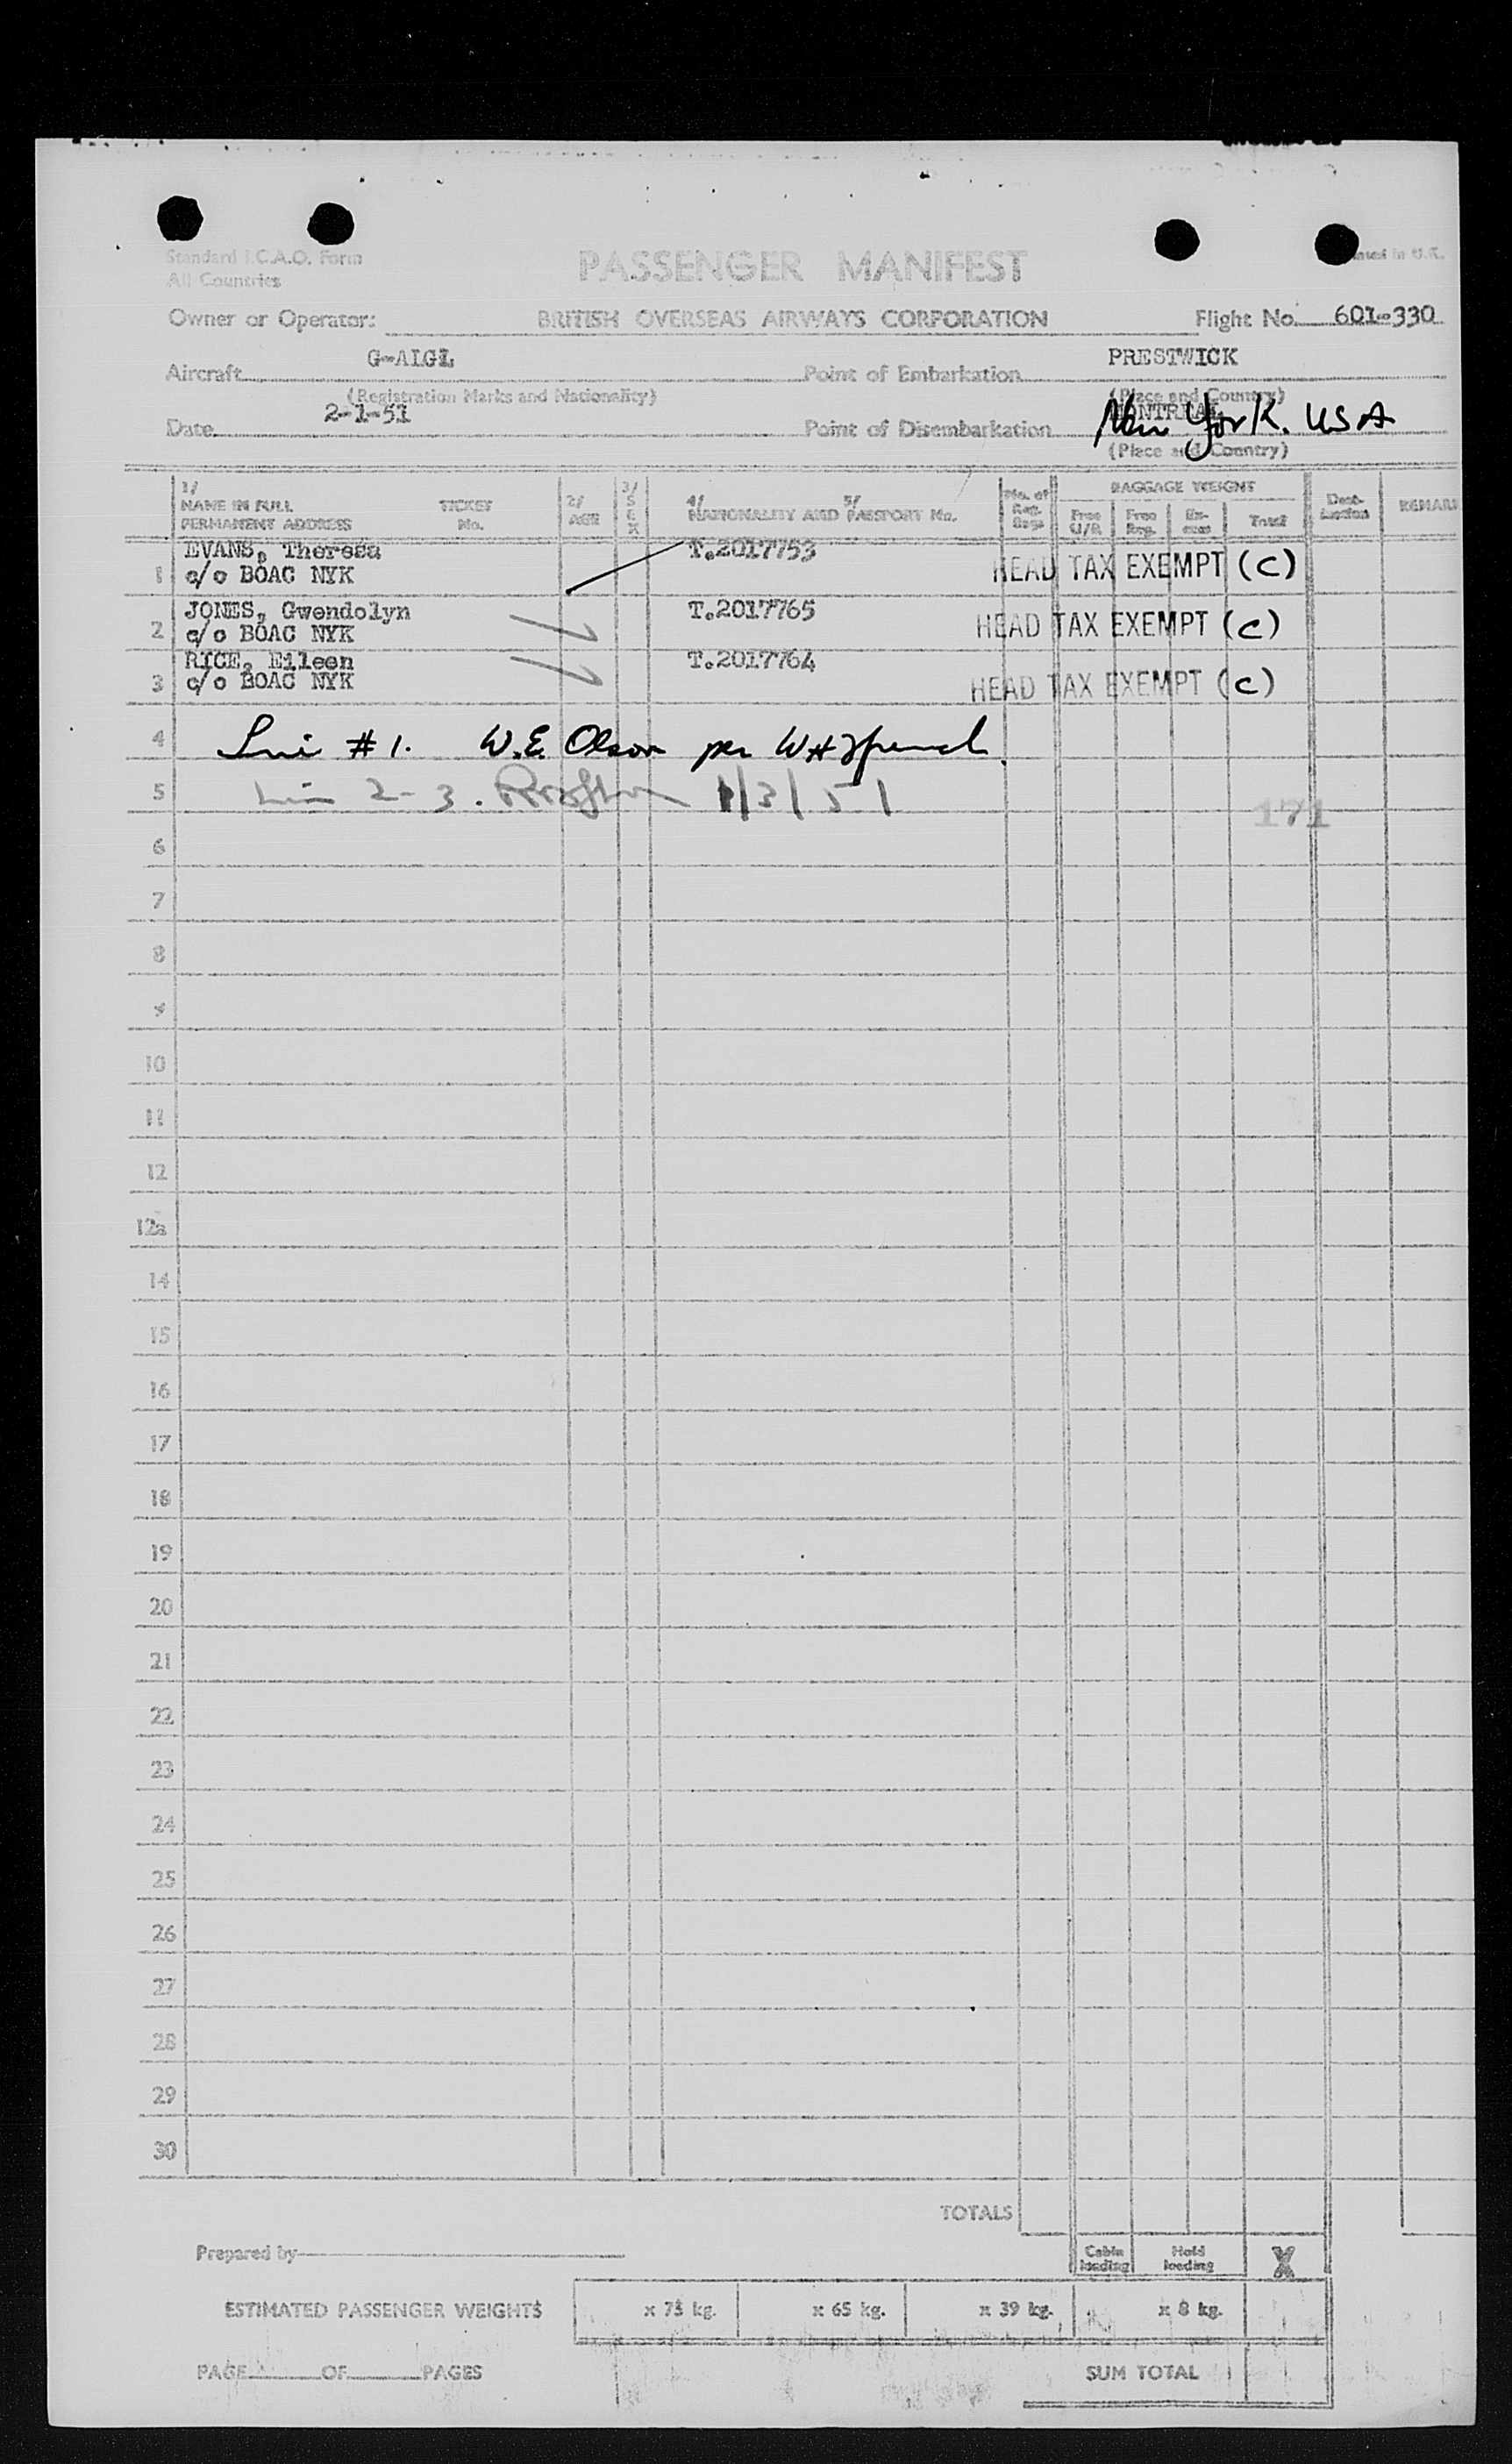 Standard I.C.A.O. Form
All Countries
PASSENGER MANIFEST
in U.K.
Owner or Operator: BRITISH OVERSEAS AIRWAYS CORPORATION Flight No. 601-330
Aircraft G-AIGL Point of Embarkation PRESTWICK
(Registration Marks and Nationality) (Place and Country)
Date 2-1-51 Point of Disembarkation MONTREAL New York. USA
(Place and Country)
1/ NAME IN FULL PERMANENT ADDRESS TICKET No. 2/ AGE 3/ SEX 4/ 5/ NATIONALITY AND PASSPORT No. No. of Reg. Bags BAGGAGE WEIGHT Free U/R Free Reg. Ex-cess Total Dest-ination REMAR
1 EVANS, Theresa T.2017753 HEAD TAX EXEMPT (C)
c/o BOAC NYK
2 JONES, Gwendolyn T.2017765 HEAD TAX EXEMPT (C)
c/o BOAC NYK
3 RICE, Eileen T.2017764 HEAD TAX EXEMPT (C)
c/o BOAC NYK
4 Line #1. W.E. Olson per W H
5 Line 2-3. 1/3/51
171
6
7
8
9
10
11
12
12a
14
15
16
17
18
19
20
21
22
23
24
25
26
27
28
29
30
TOTALS
Prepared by Cabin loading Hold loading X
ESTIMATED PASSENGER WEIGHTS x 75 kg. x 65 kg. x 39 kg. x 8 kg.
PAGE OF PAGES SUM TOTAL